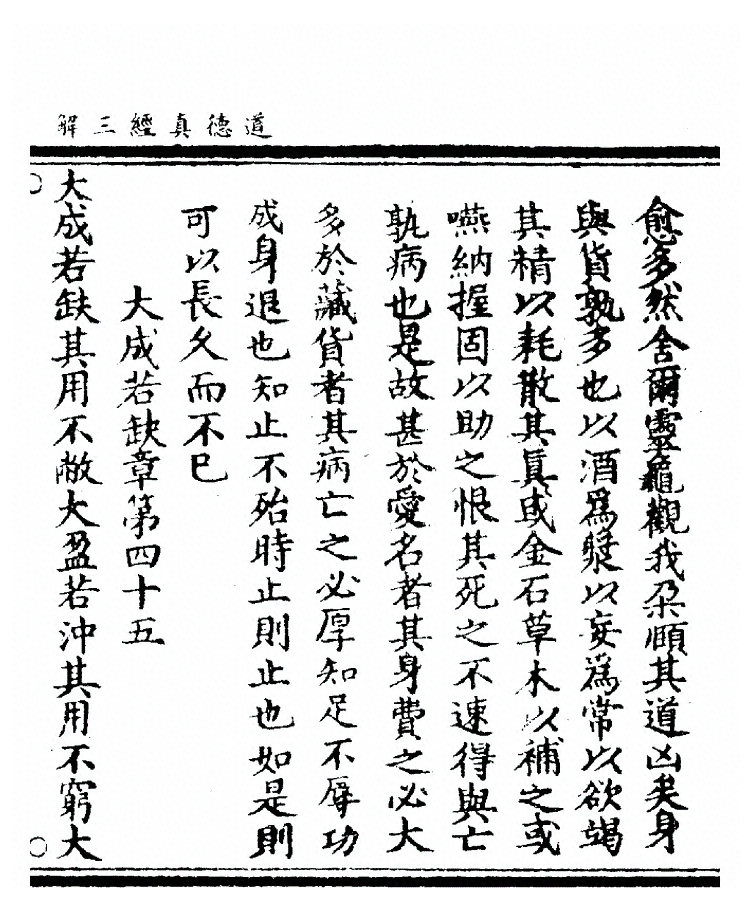 道德真經三解
愈多然舍爾靈龜觀我朶頤其道凶矣身
與貨孰多也以酒為漿以妄為常以欲竭
其精以耗散其真或金石草木以補之或
嚥納握固以助之恨其死之不速得與亡
孰病也是故甚於愛名者其身費之必大
多於藏貨者其病亡之必厚知足不辱功
成身退也知止不殆時止則止也如是則
可以長久而不已
大成若缺章第四十五
大成若缺其用不敝大盈若沖其用不窮大